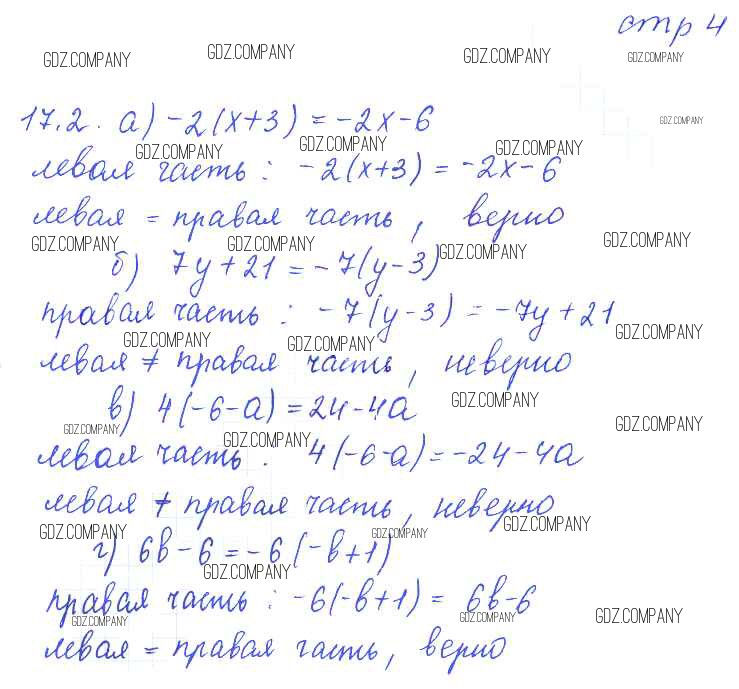 стр 4
GDZ.COMPANY GDZ.COMPANY GDZ.COMPANY GDZ.COMPANY
17.2. а) -2(x+3) = -2x-6
GDZ.COMPANY
GDZ.COMPANY GDZ.COMPANY GDZ.COMPANY
левая часть : -2(x+3) = -2x-6
левая = правая часть, верно
GDZ.COMPANY GDZ.COMPANY GDZ.COMPANY GDZ.COMPANY
б) 7y+21 = -7(y-3)
правая часть : -7(y-3) = -7y+21
GDZ.COMPANY GDZ.COMPANY GDZ.COMPANY
левая ≠ правая часть, неверно
в) 4(-6-a) = 24-4a
GDZ.COMPANY
GDZ.COMPANY GDZ.COMPANY GDZ.COMPANY
левая часть : 4(-6-a) = -24-4a
левая ≠ правая часть, неверно
GDZ.COMPANY GDZ.COMPANY GDZ.COMPANY
г) 6b-6 = -6(-b+1)
GDZ.COMPANY
правая часть : -6(-b+1) = 6b-6
GDZ.COMPANY GDZ.COMPANY GDZ.COMPANY
левая = правая часть, верно